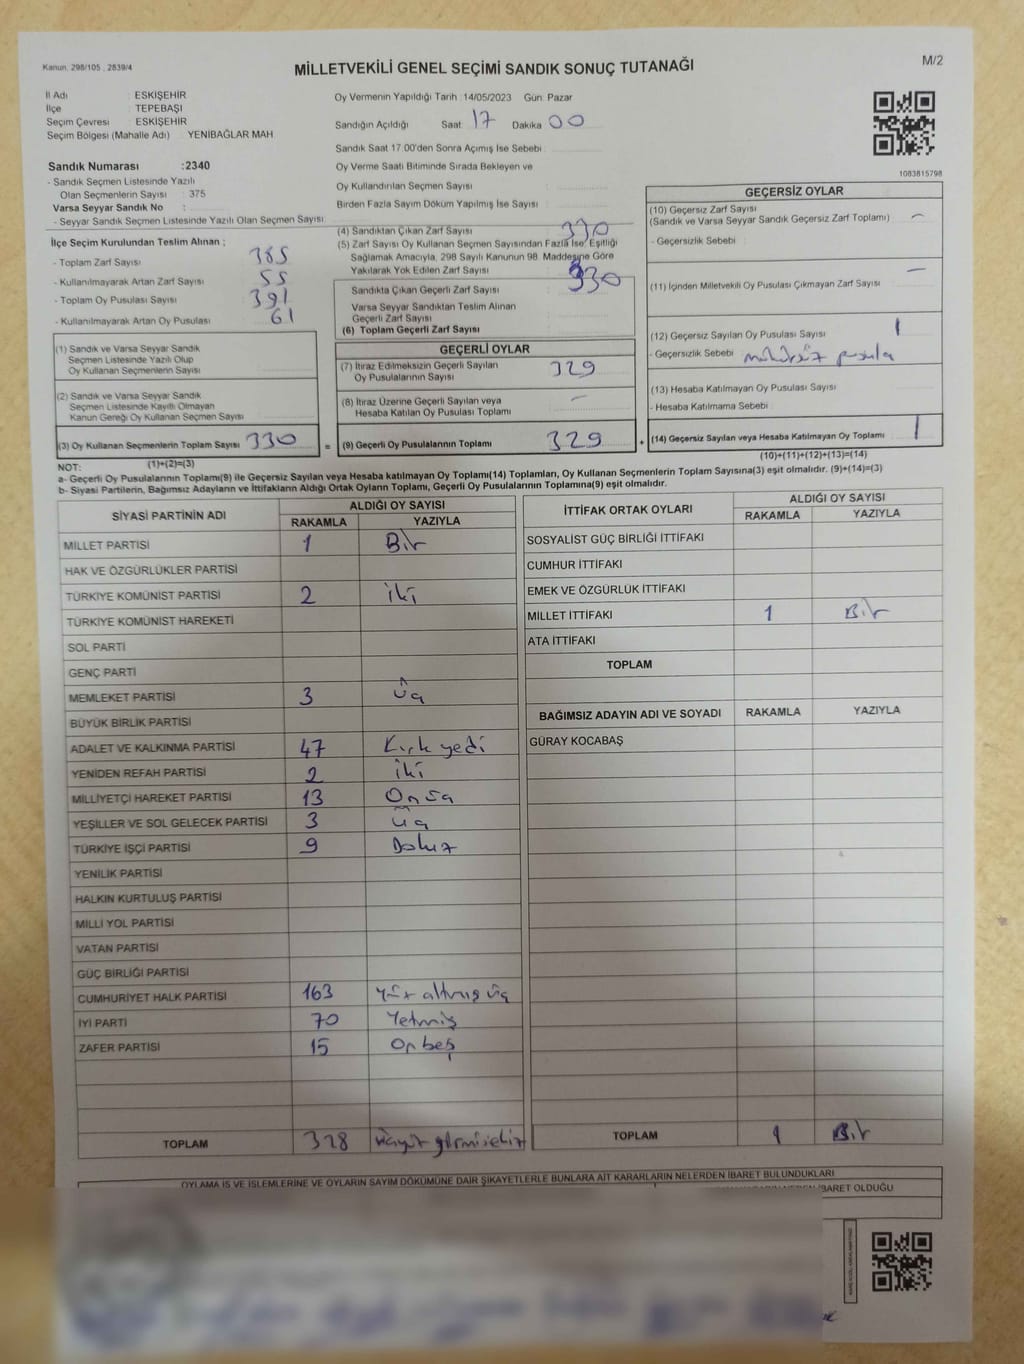 Kanun. 298/105 , 2839/4
MİLLETVEKİLİ GENEL SEÇİMİ SANDIK SONUÇ TUTANAĞI
M/2
İl Adı : ESKİŞEHİR
İlçe : TEPEBAŞI
Seçim Çevresi : ESKİŞEHİR
Seçim Bölgesi (Mahalle Adı) YENİBAĞLAR MAH.
Sandık Numarası :2340
- Sandık Seçmen Listesinde Yazılı
Olan Seçmenlerin Sayısı : 375
Varsa Seyyar Sandık No :
- Seyyar Sandık Seçmen Listesinde Yazılı Olan Seçmen Sayısı :
Oy Vermenin Yapıldığı Tarih :14/05/2023 Gün: Pazar
Sandığın Açıldığı Saat : 17 Dakika : 00
Sandık Saat 17.00'den Sonra Açımış İse Sebebi :
Oy Verme Saati Bitiminde Sırada Bekleyen ve
Oy Kullandırılan Seçmen Sayısı
Birden Fazla Sayım Döküm Yapılmış İse Sayısı :
1083815798
İlçe Seçim Kurulundan Teslim Alınan ;
- Toplam Zarf Sayısı : 385
- Kullanılmayarak Artan Zarf Sayısı : 55
- Toplam Oy Pusulası Sayısı : 391
- Kullanılmayarak Artan Oy Pusulası : 61
(1) Sandık ve Varsa Seyyar Sandık
Seçmen Listesinde Yazılı Olup
Oy Kullanan Seçmenlerin Sayısı :
(2) Sandık ve Varsa Seyyar Sandık
Seçmen Listesinde Kayıtlı Olmayan
Kanun Gereği Oy Kullanan Seçmen Sayısı :
(3) Oy Kullanan Seçmenlerin Toplam Sayısı : 330
(1)+(2)=(3)
(4) Sandıktan Çıkan Zarf Sayısı : 330
(5) Zarf Sayısı Oy Kullanan Seçmen Sayısından Fazla İse, Eşitliği
Sağlamak Amacıyla, 298 Sayılı Kanunun 98. Maddesine Göre
Yakılarak Yok Edilen Zarf Sayısı :
Sandıkta Çıkan Geçerli Zarf Sayısı : 330
Varsa Seyyar Sandıktan Teslim Alınan
Geçerli Zarf Sayısı :
(6) Toplam Geçerli Zarf Sayısı :
=
GEÇERLİ OYLAR
(7) İtiraz Edilmeksizin Geçerli Sayılan
Oy Pusulalarının Sayısı : 329
(8) İtiraz Üzerine Geçerli Sayılan veya
Hesaba Katılan Oy Pusulası Toplamı : -
(9) Geçerli Oy Pusulalarının Toplamı : 329
+
GEÇERSİZ OYLAR
(10) Geçersiz Zarf Sayısı : -
(Sandık ve Varsa Seyyar Sandık Geçersiz Zarf Toplamı)
- Geçersizlik Sebebi :
(11) İçinden Milletvekili Oy Pusulası Çıkmayan Zarf Sayısı : -
(12) Geçersiz Sayılan Oy Pusulası Sayısı : 1
- Geçersizlik Sebebi : mühürsüz pusula
(13) Hesaba Katılmayan Oy Pusulası Sayısı :
- Hesaba Katılmama Sebebi :
(14) Geçersiz Sayılan veya Hesaba Katılmayan Oy Toplamı : 1
(10)+(11)+(12)+(13)=(14)
NOT:
a- Geçerli Oy Pusulalarının Toplamı(9) ile Geçersiz Sayılan veya Hesaba katılmayan Oy Toplamı(14) Toplamları, Oy Kullanan Seçmenlerin Toplam Sayısına(3) eşit olmalıdır. (9)+(14)=(3)
b- Siyasi Partilerin, Bağımsız Adayların ve İttifakların Aldığı Ortak Oyların Toplamı, Geçerli Oy Pusulalarının Toplamına(9) eşit olmalıdır.
SİYASİ PARTİNİN ADI ALDIĞI OY SAYISI
RAKAMLA YAZIYLA
MİLLET PARTİSİ 1 Bir
HAK VE ÖZGÜRLÜKLER PARTİSİ
TÜRKİYE KOMÜNİST PARTİSİ 2 iki
TÜRKİYE KOMÜNİST HAREKETİ
SOL PARTİ
GENÇ PARTİ
MEMLEKET PARTİSİ 3 Üç
BÜYÜK BİRLİK PARTİSİ
ADALET VE KALKINMA PARTİSİ 47 Kırk yedi
YENİDEN REFAH PARTİSİ 2 iki
MİLLİYETÇİ HAREKET PARTİSİ 13 Onüç
YEŞİLLER VE SOL GELECEK PARTİSİ 3 üç
TÜRKİYE İŞÇİ PARTİSİ 9 Dokuz
YENİLİK PARTİSİ
HALKIN KURTULUŞ PARTİSİ
MİLLİ YOL PARTİSİ
VATAN PARTİSİ
GÜÇ BİRLİĞİ PARTİSİ
CUMHURİYET HALK PARTİSİ 163 Yüz altmış üç
İYİ PARTİ 70 Yetmiş
ZAFER PARTİSİ 15 Onbeş
TOPLAM 328 üçyüz yirmisekiz
İTTİFAK ORTAK OYLARI ALDIĞI OY SAYISI
RAKAMLA YAZIYLA
SOSYALİST GÜÇ BİRLİĞİ İTTİFAKI
CUMHUR İTTİFAKI
EMEK VE ÖZGÜRLÜK İTTİFAKI
MİLLET İTTİFAKI 1 Bir
ATA İTTİFAKI
TOPLAM
BAĞIMSIZ ADAYIN ADI VE SOYADI RAKAMLA YAZIYLA
GÜRAY KOCABAŞ
TOPLAM 1 Bir
OYLAMA İŞ VE İŞLEMLERİNE VE OYLARIN SAYIM DÖKÜMÜNE DAİR ŞİKAYETLERLE BUNLARA AİT KARARLARIN NELERDEN İBARET BULUNDUKLARI
İBARET OLDUĞU